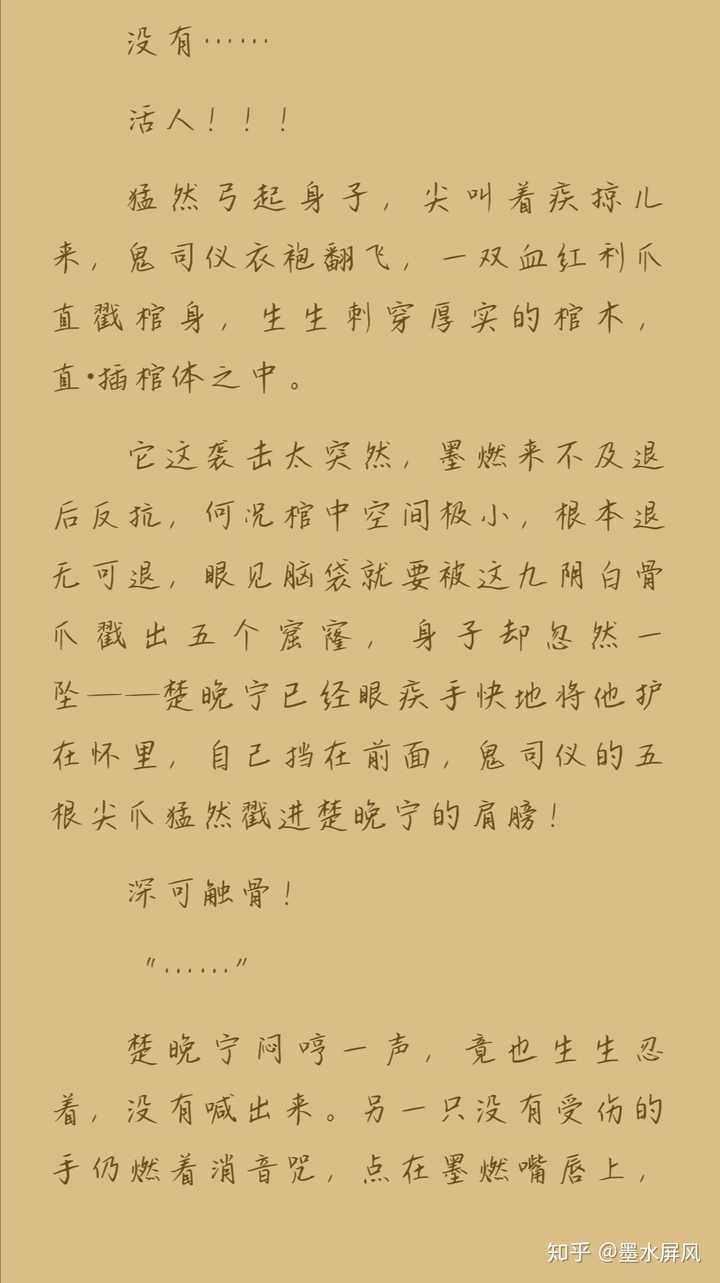 没有……
活人！！！
猛然弓起身子，尖叫着疾掠儿
来，鬼司仪衣袍翻飞，一双血红利爪
直戳棺身，生生刺穿厚实的棺木，
直•插棺体之中。
它这袭击太突然，墨燃来不及退
后反抗，何况棺中空间极小，根本退
无可退，眼见脑袋就要被这九阴白骨
爪戳出五个窟窿，身子却忽然一
坠——楚晚宁已经眼疾手快地将他护
在怀里，自己挡在前面，鬼司仪的五
根尖爪猛然戳进楚晚宁的肩膀！
深可触骨！
“……”
楚晚宁闷哼一声，竟也生生忍
着，没有喊出来。另一只没有受伤的
手仍燃着消音咒，点在墨燃嘴唇上，
知乎 @墨水屏风